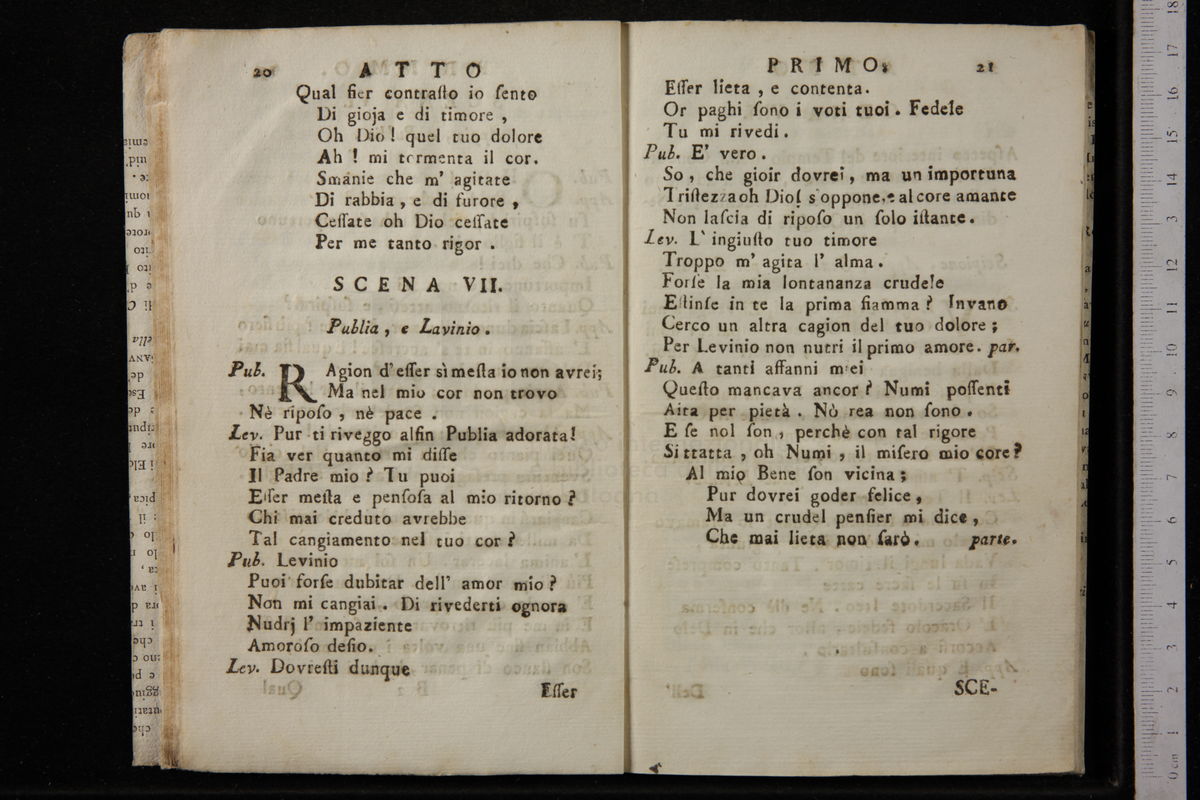 20 ATTO
Qual fier contraſto io ſento
Di gioja e di timore ,
Oh Dio ! quel tuo dolore
Ah ! mi tormenta il cor.
Smanie che m' agitate
Di rabbia , e di furore ,
Ceſſate oh Dio ceſſate
Per me tanto rigor .
SCENA VII.
Publia , e Lavinio .
Pub. RAgion d'eſſer sì meſta io non avrei;
Ma nel mio cor non trovo
Nè ripoſo , nè pace .
Lev. Pur ti riveggo alfin Publia adorata!
Fia ver quanto mi diſſe
Il Padre mio ? Tu puoi
Eſſer meſta e penſoſa al mio ritorno ?
Chi mai creduto avrebbe
Tal cangiamento nel tuo cor ?
Pub. Levinio
Puoi forſe dubitar dell' amor mio ?
Non mi cangiai . Di rivederti ognora
Nudrj l' impaziente
Amoroſo deſio.
Lev. Dovreſti dunque
Eſſer
PRIMO. 21
Eſſer lieta , e contenta.
Or paghi ſono i voti tuoi . Fedele
Tu mi rivedi .
Pub. E' vero .
So , che gioir dovrei , ma un importuna
Triſtezza oh Dio! s'oppone, e al core amante
Non laſcia di ripoſo un ſolo iſtante.
Lev. L' ingiuſto tuo timore
Troppo m' agita l' alma .
Forſe la mia lontananza crudele
Eſtinſe in te la prima fiamma ? Invano
Cerco un altra cagion del tuo dolore ;
Per Levinio non nutri il primo amore. par.
Pub. A tanti affanni miei
Queſto mancava ancor ? Numi poſſenti
Aita per pietà . Nò rea non ſono .
E ſe nol ſon , perchè con tal rigore
Si tratta , oh Numi , il miſero mio core ?
Al mio Bene ſon vicina ;
Pur dovrei goder felice ,
Ma un crudel penſier mi dice ,
Che mai lieta non ſarò . parte.
SCE-